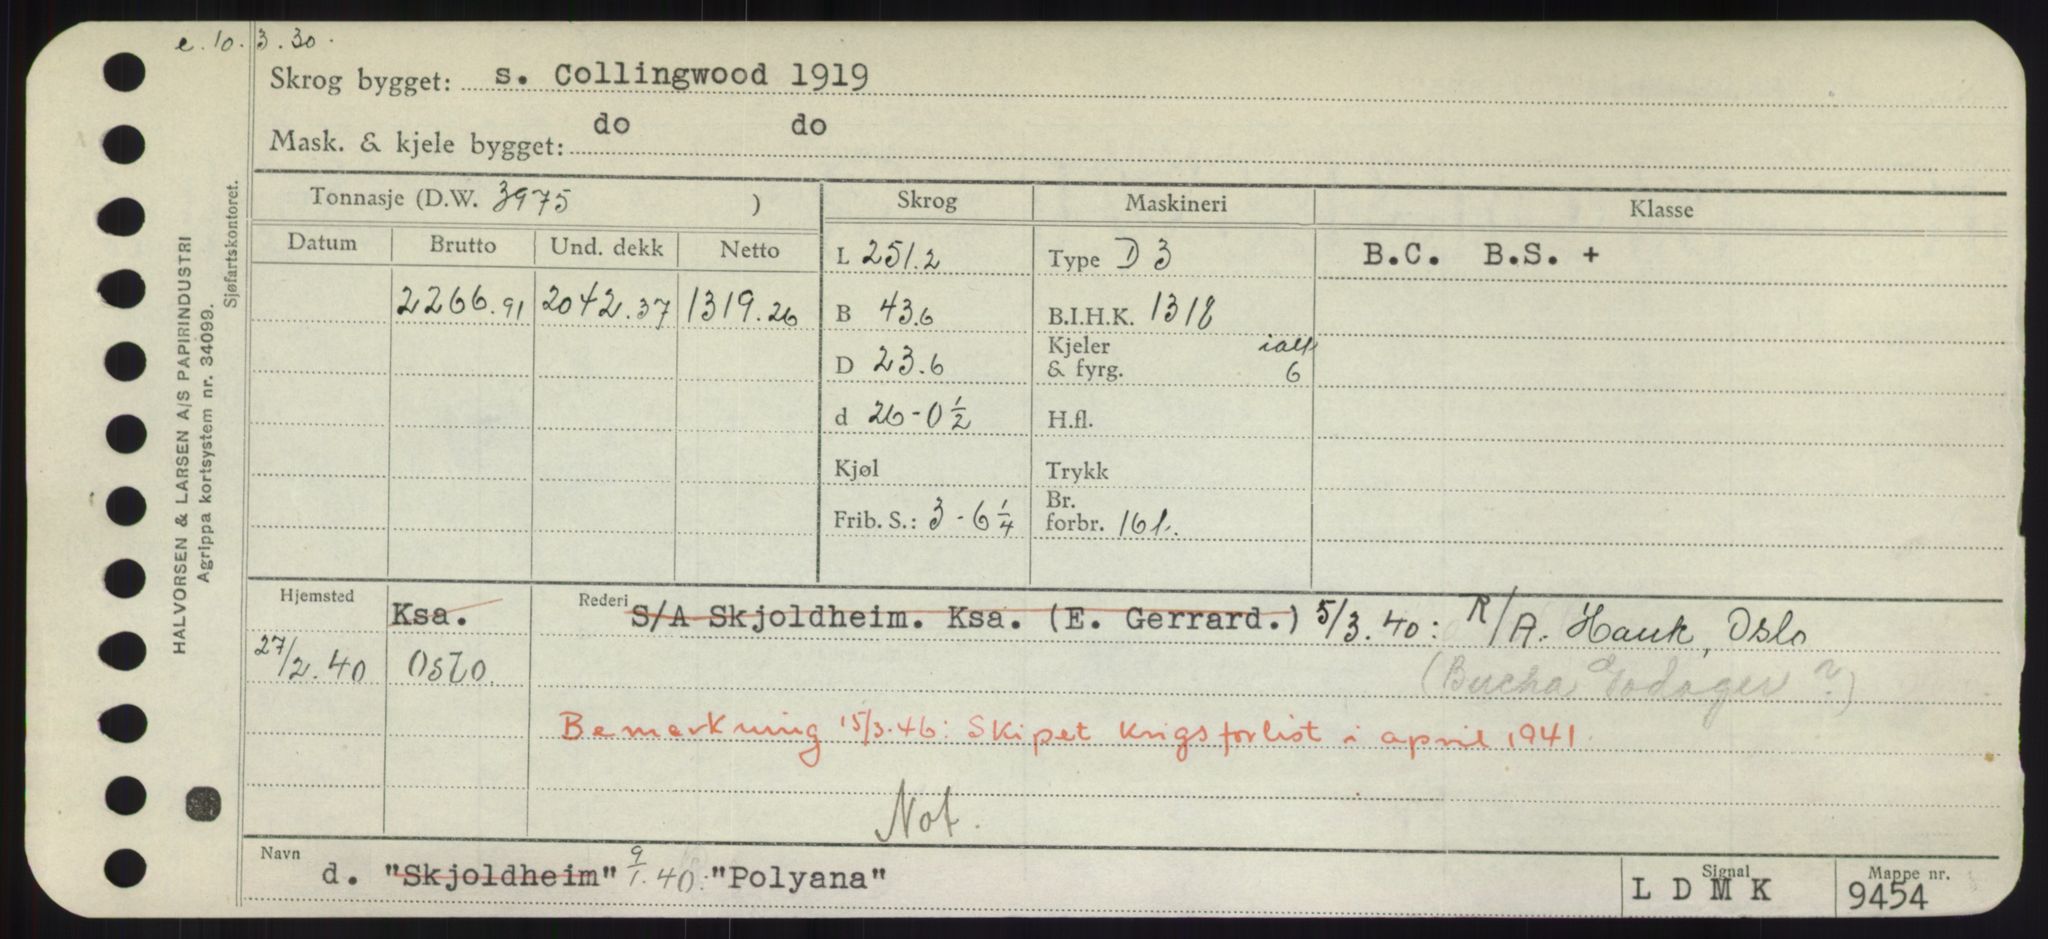 e. 10. 3. 30.
Skrog bygget: s. Collingwood 1919
Mask. & kjele bygget: do do
Tonnasje (D.W. 3975 ) Skrog Maskineri Klasse
Datum Brutto Und. dekk Netto L 251.2 Type D 3 B.C. B.S. +
2266.91 2042.37 1319.26 B 43.6 B.I.H.K. 1318
D 23.6 Kjeler & fyrg. ialt 6
d 26-0 1/2 H.fl.
Kjøl Trykk
Frib. S.: 3-6 1/4 Br. forbr. 16 t.
Hjemsted Ksa. Rederi S/A Skjoldheim. Ksa. (E. Gerrard.) 5/3.40: R/A. Hauk, Oslo
27/2.40 Oslo. (Bucha Godager ?)
Bemerkning 15/3.46: Skipet krigsforlist i april 1941
Not.
Navn d. "Skjoldheim" 9/1.40: "Polyana" Signal L D M K Mappe nr. 9454
HALVORSEN & LARSEN A/S PAPIRINDUSTRI
Agrippa kortsystem nr. 34099.
Sjøfartskontoret.